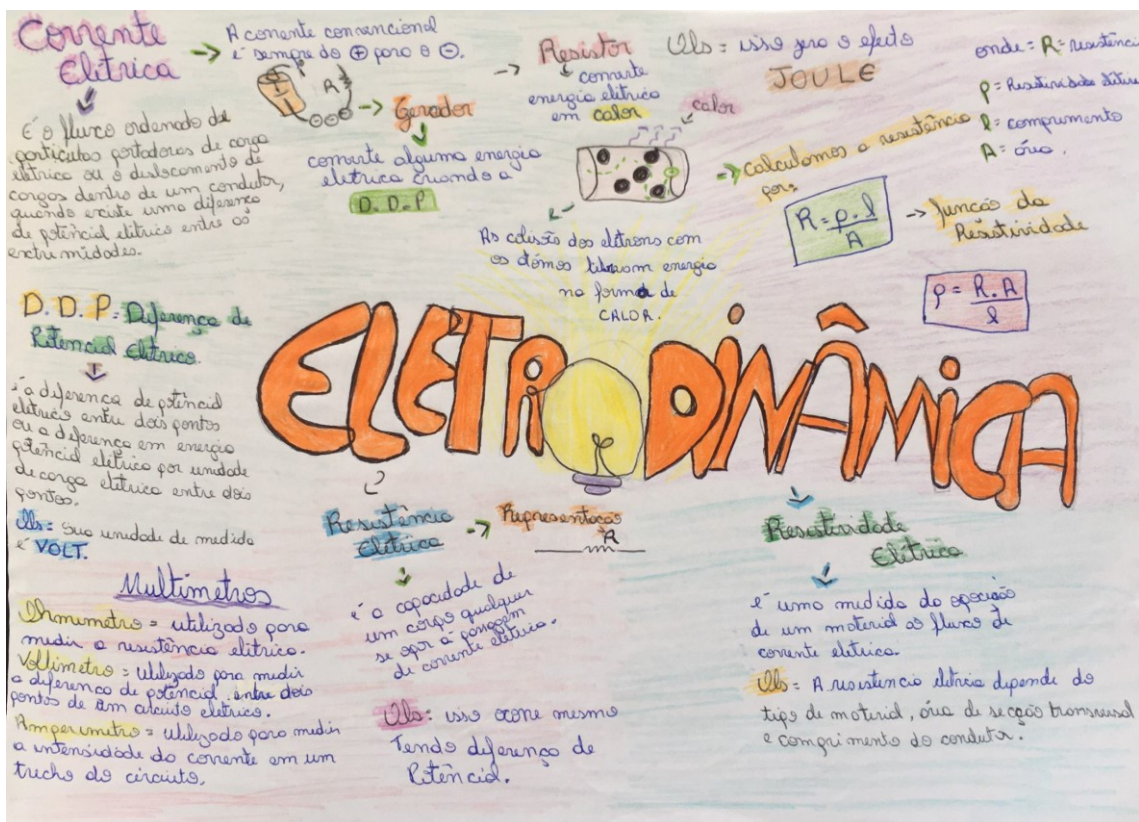 Corrente
Elétrica
→ A corrente convencional
é sempre do ⊕ para o ⊖.
É o fluxo ordenado de
partículas portadoras de carga
elétrica ou o deslocamento de
cargas dentro de um condutor,
quando existe uma diferença
de potêncial elétrico entre as
extremidades.
R
→ Gerador
converte alguma energia
elétrica criando a
D.D.P
→ Resistor
converte
energia elétrica
em calor
calor
As colisão dos elétrons com
os átomos liberam energia
na forma de
CALOR.
Obs = isso gera o efeito
JOULE
→ calculamos a resistência
por:
R = ρ . l
A
→ função da
Resistividade
ρ = R . A
l
onde = R = resistência
ρ = Resistividade
l = comprimento
A = área.
D. D. P = Diferença de
Potencial Elétrico.
é a diferença de potêncial
elétrico entre dois pontos
ou a diferença em energia
potêncial elétrico por unidade
de carga elétrica entre dois
pontos.
Obs = Sua unidade de medida
é VOLT.
ELETRODINÂMICA
Multimetros
Ohmimetro = utilizado para
medir a resistência elétrica.
Voltimetro = Utilizado para medir
a diferença de potêncial entre dois
pontos de um circuito elétrico.
Amperimetro = utilizado para medir
a intensidade da corrente em um
trecho do circuito.
Resistência
Elétrica
→ Representação
R
é a capacidade de
um corpo qualquer
se opor à passagem
de corrente elétrica.
Obs: isso ocorre mesmo
Tendo diferença de
Potêncial.
Resistividade
Elétrica
é uma medida da oposição
de um material ao fluxo de
corrente elétrica.
Obs = A resistencia elétrica depende do
tipo de material, área de secção transversal
e comprimento do condutor.